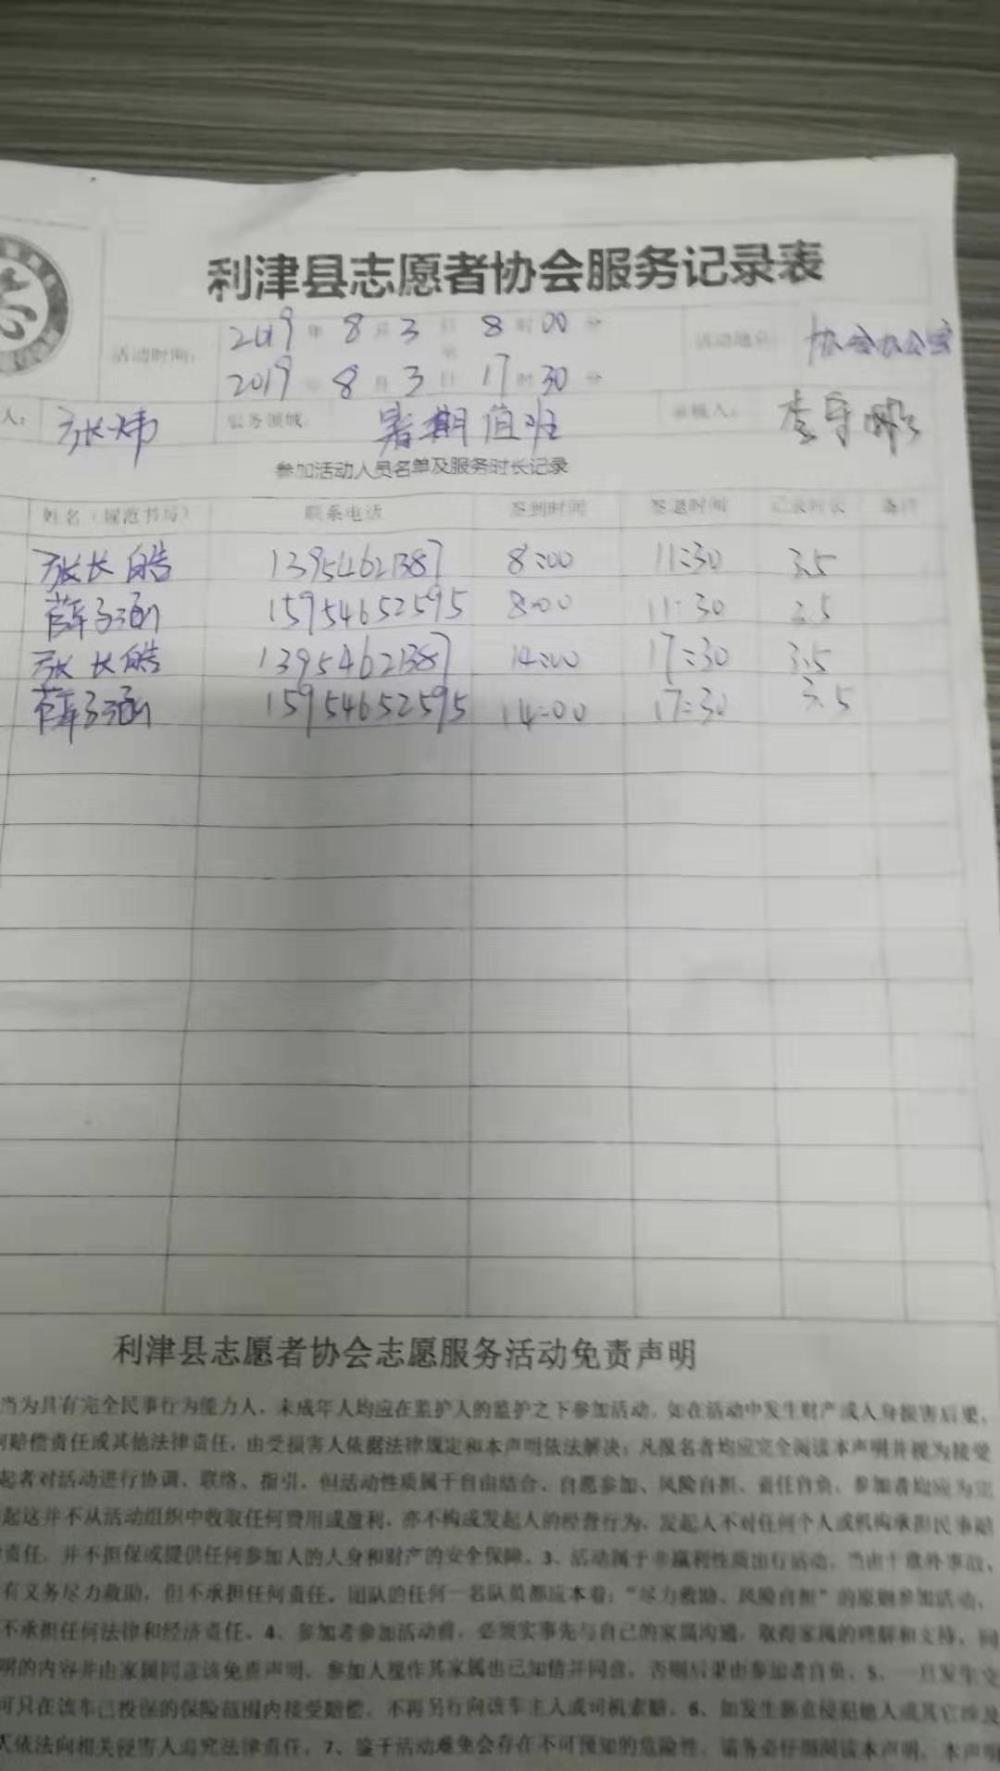 利津县志愿者协会服务记录表
活动时间： 2019 年 8 月 3 日 8 时 00 分 活动地点： 协会办公室
至
2019 年 8 月 3 日 17 时 30 分
人： 张炜 服务领域： 暑期值班 审核人：
参加活动人员名单及服务时长记录
姓名（规范书写） 联系电话 签到时间 签退时间 记录时长 备注
张长皓 13954621387 8:00 11:30 3.5
薛子涵 15954652595 8:00 11:30 3.5
张长皓 13954621387 14:00 17:30 3.5
薛子涵 15954652595 14:00 17:30 3.5
利津县志愿者协会志愿服务活动免责声明
当为具有完全民事行为能力人，未成年人均应在监护人的监护之下参加活动，如在活动中发生财产或人身损害后果，
赔偿责任或其他法律责任，由受损害人依据法律规定和本声明依法解决；凡报名者均应完全阅读本声明并视为接受
起者对活动进行协调、联络、指引，但活动性质属于自由结合、自愿参加、风险自担、责任自负，参加者均应为完
起这并不从活动组织中收取任何费用或盈利，亦不构成发起人的经营行为，发起人不对任何个人或机构承担民事赔
责任，并不担保或提供任何参加人的人身和财产的安全保障。3、活动属于非赢利性质出行活动，当由于意外事故，
有义务尽力救助，但不承担任何责任，团队的任何一名队员都应本着：“尽力救助、风险自担”的原则参加活动，
不承担任何法律和经济责任。4、参加者参加活动前，必须实事先与自己的家属沟通，取得家属的理解和支持，同
明的内容并由家属同意该免责声明，参加人操作其家属也已知情并同意，否则后果由参加者自负。5、一旦发生交
可只在该车已投保的保险范围内接受赔偿，不再另行向该车主人或司机索赔。6、如发生恶意侵犯他人或其它涉及
人依法向相关侵害人追究法律责任。7、鉴于活动难免会存在不可预知的危险性，请务必仔细阅读本声明，本声明